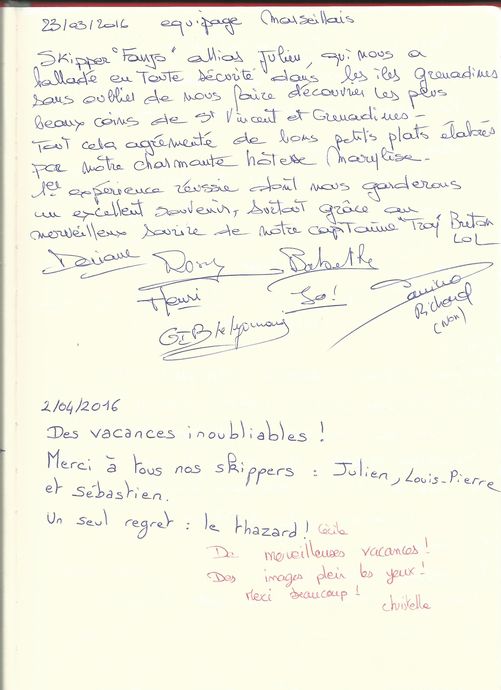 23/03/2016 equipage Marseillais
Skipper "Fanjo" allias Julien, qui nous a
balladé en Toute sécurité dans les iles grenadines
sans oublier de nous faire découvrir les plus
beaux coins de St Vincent et Grenadines -
Tout cela agrémenté de bons petits plats élaborés
par notre charmante hôtesse Marylise -
1er expérience réussie dont nous garderons
un excellent souvenir, surtout grâce au
merveilleux sourire de notre capitaine "Troy" Breton
LOL
Dany Babethe
Henri Jo!
Richard
(Non)
2/04/2016
Des vacances inoubliables !
Merci à tous nos skippers : Julien, Louis-Pierre
et Sébastien.
Un seul regret : le thazard ! Cécile
De merveilleuses vacances !
Des images plein les yeux !
Merci beaucoup !
Christelle